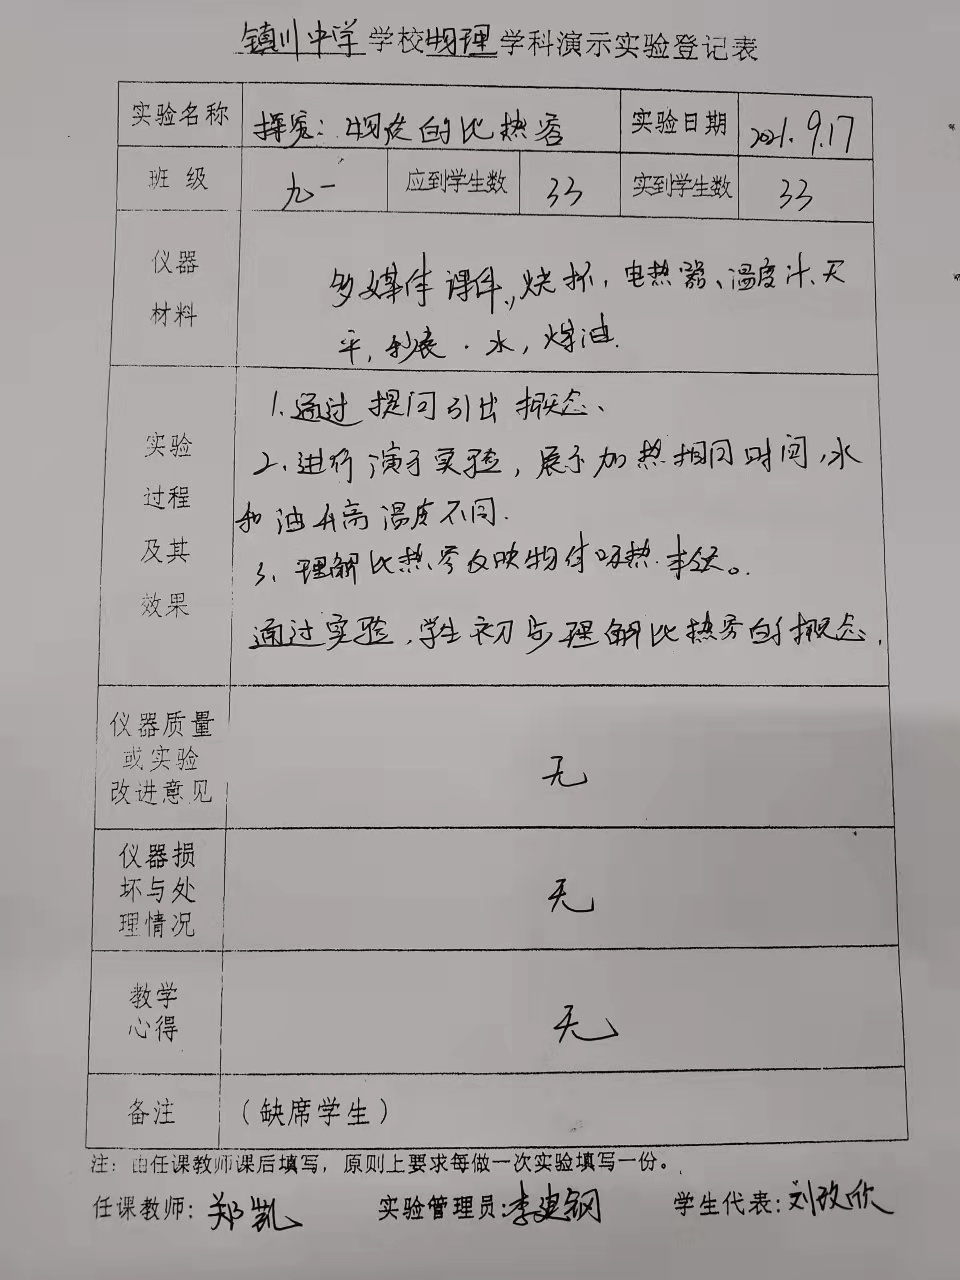 镇川中学学校物理学科演示实验登记表
实验名称 探究：物质的比热容 实验日期 2021.9.17
班级 九一 应到学生数 33 实到学生数 33
仪器
材料
多媒体课件、烧杯，电热器、温度计、天
平，秒表．水，煤油．
实验
过程
及其
效果
1.通过提问引出概念、
2、进行演示实验，展示加热相同时间，水
和油升高温度不同．
3、理解比热容反映物体吸热本领。
通过实验，学生初步理解比热容的概念．
仪器质量
或实验
改进意见
无
仪器损
坏与处
理情况
无
教学
心得
无
备注 （缺席学生）
注：由任课教师课后填写，原则上要求每做一次实验填写一份。
任课教师：郑凯 实验管理员：李建钢 学生代表：刘改欣